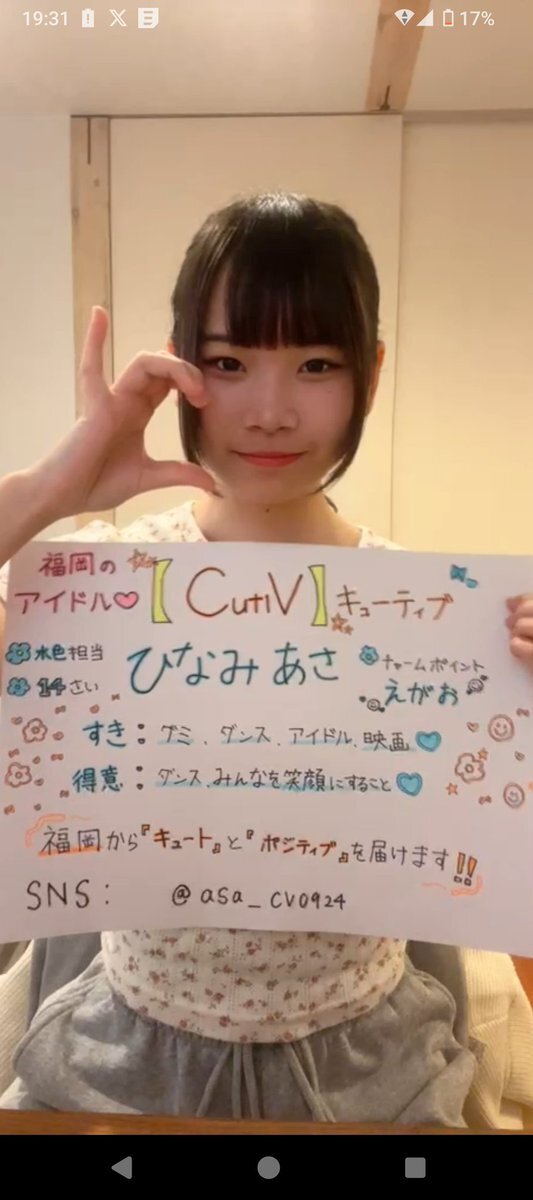 19:31
17%
福岡の
アイドル♡
【CutiV】キューティブ
水色担当
14さい
ひなみ あさ
チャームポイント
えがお
すき：グミ、ダンス、アイドル、映画
得意：ダンス、みんなを笑顔にすること
福岡から『キュート』と『ポジティブ』を届けます!!
SNS： @asa_cv0924